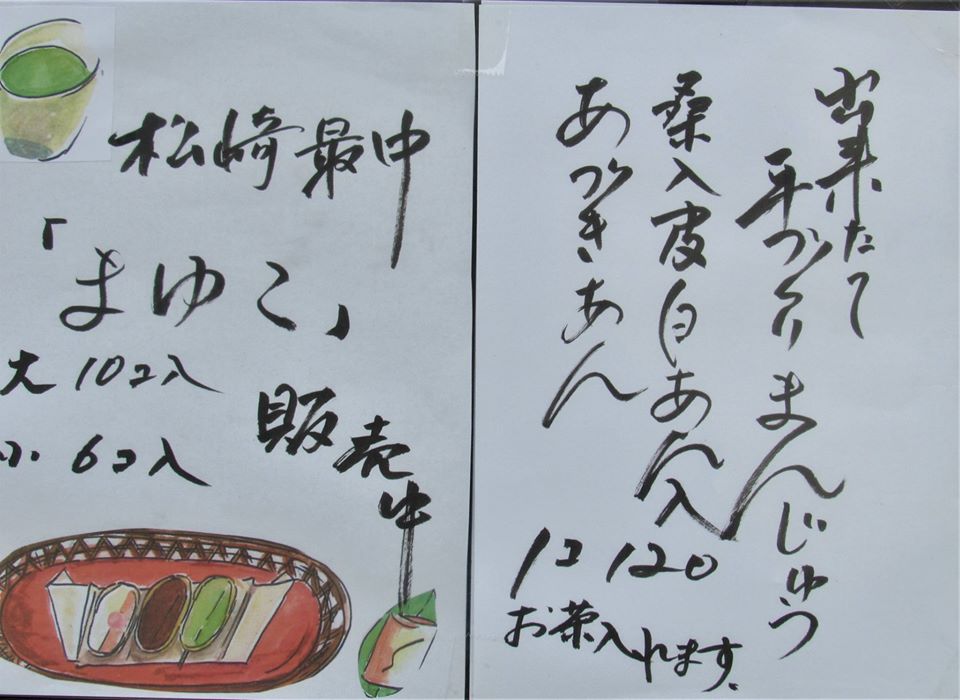 松崎最中
「まゆこ」
大 10コ入
小 6コ入
販売中
出来たて
手づくり まんじゅう
桑入皮白あん入
あづきあん
1コ 120
お茶入れます。